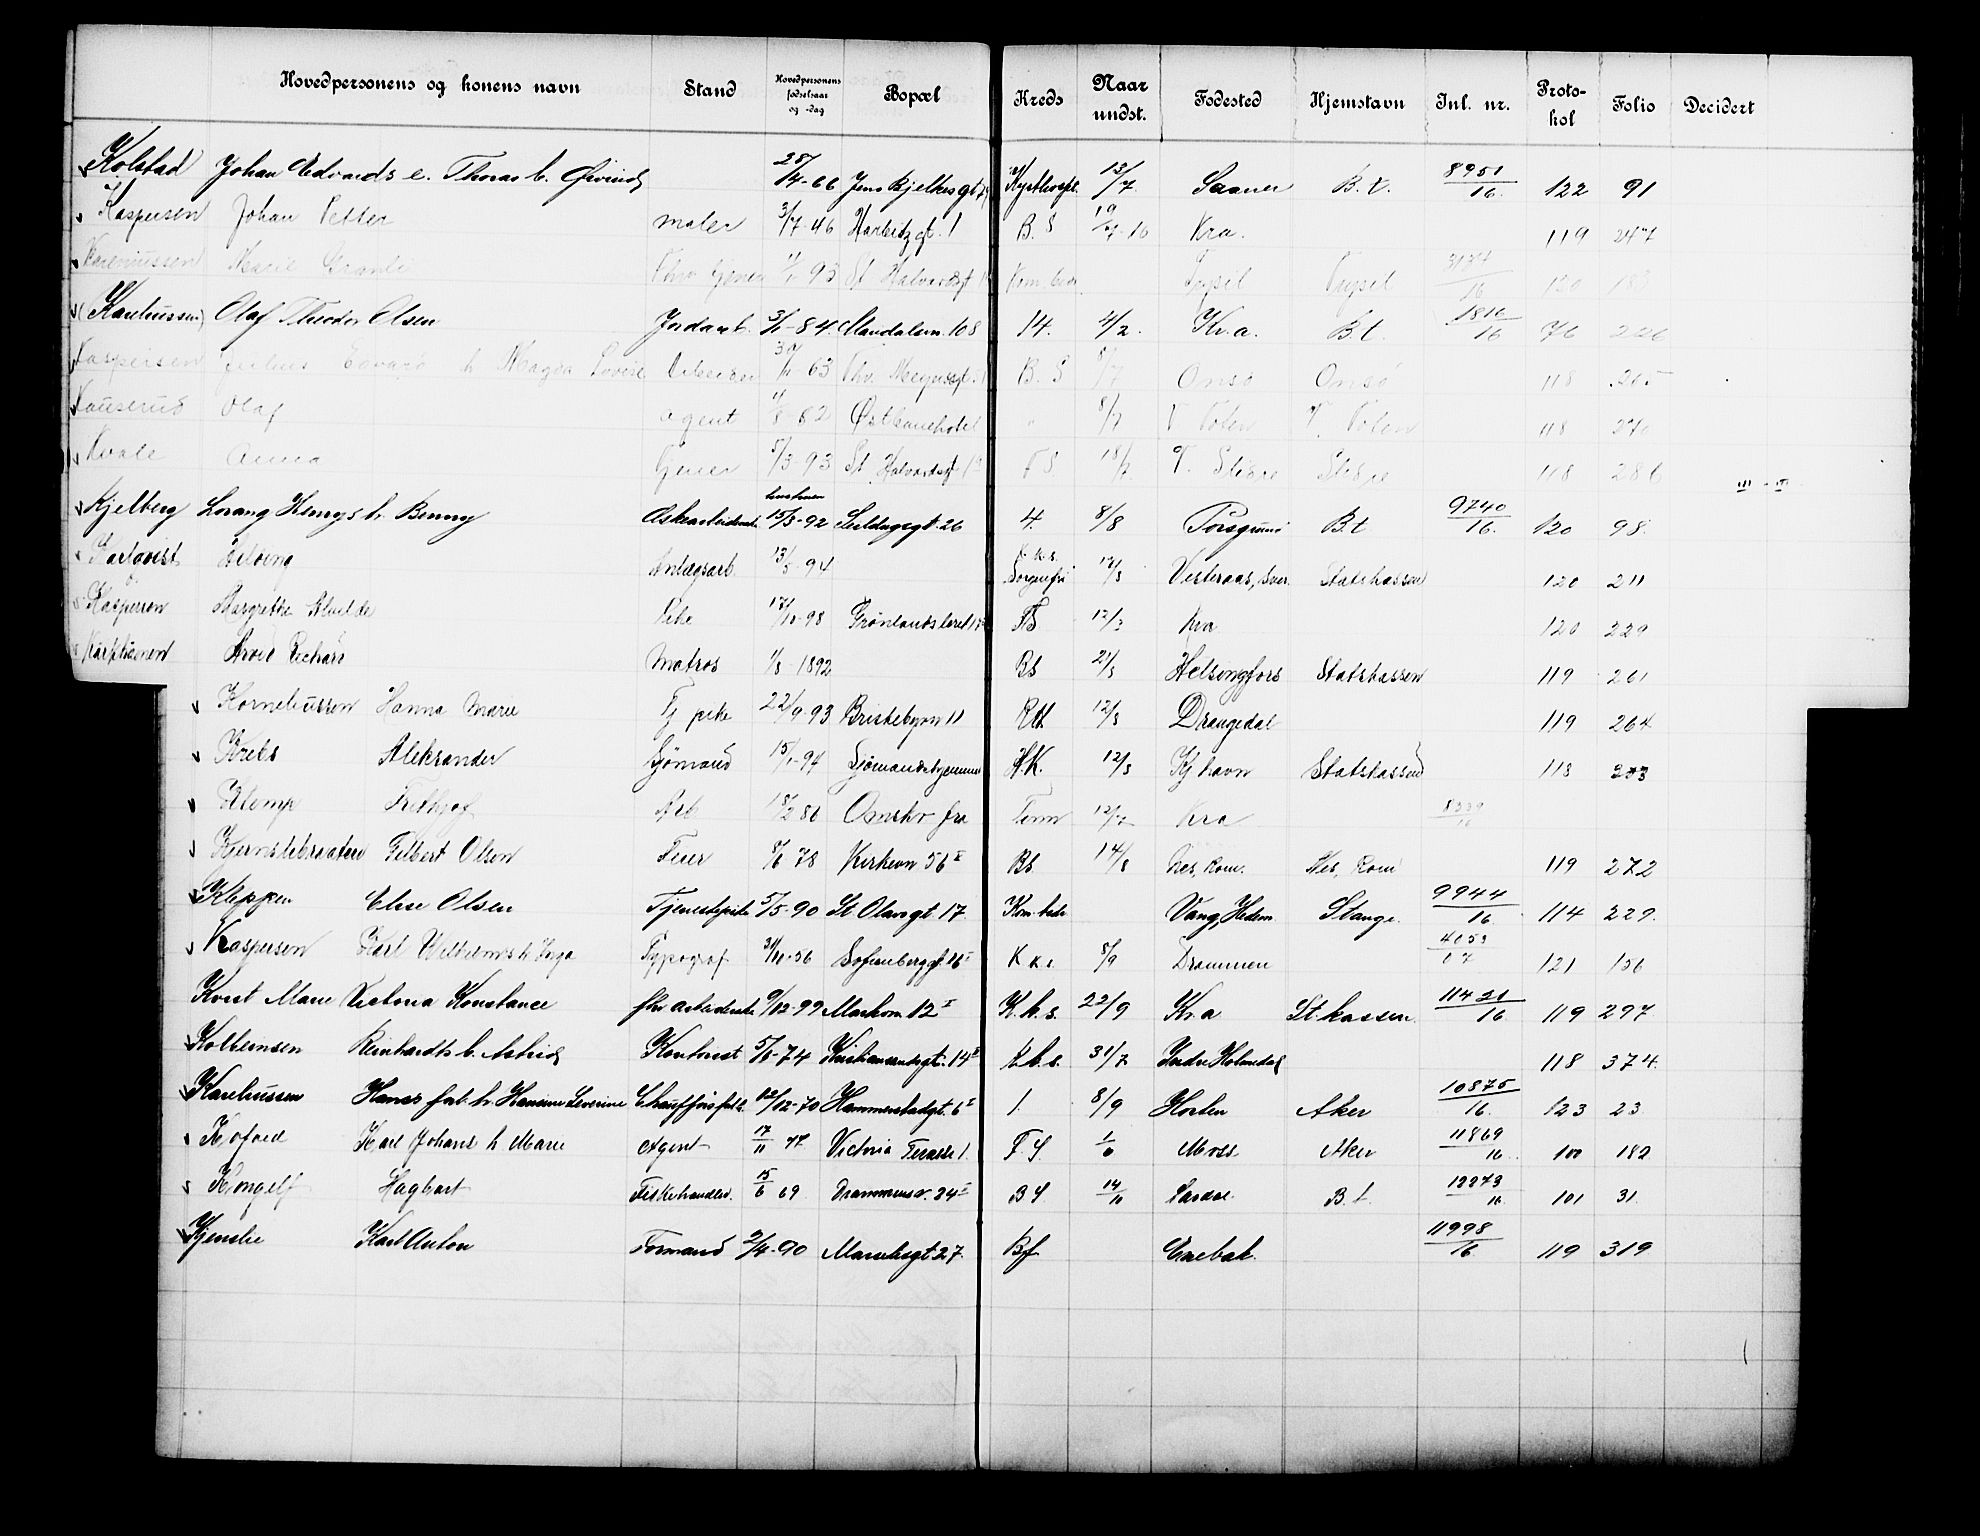 Hovedpersonens og konens navn Stand Hovedpersonens fødselsaar og -dag Bopæl Kreds Naar undst. Fødested Hjemstavn Inl. nr. Proto-kol Folio Decidert
Kolstad Johan Edvards e. Thoras b. Øivind 28/4-66 Jens Bjelkes gt 13/7 Saaner B.t. 8951/16 122 91
Kaspersen Johan Petter maler 3/7-46 Harbitz gt. 1 B.S 19/7-16 Kra. 119 247
Marie Granli 93 St Halvardsgt Trysil Trysil 16 120 183
(Kareliussen) Olaf Theodor Olsen Jordarb. 3/1-84 Maridalsvn. 108 14. 4/2. Kr.a. B.t. 1816/16 76 226
Kaspersen Julius Edvard h Magda Lovise 63 Thv. Meyersgt B.S 8/7 Onsø Onsø 118 265
Olaf agent 8-82 Østbanehotel 8/7 V Toten V. Toten 118 270
Kvale Anna Tjener 5/3-93 St Halvardsgt FS 18/7 V. Slidre Slidre 118 286
Kjelberg Lorang Henrys h. Benny 15/8-92 Seildugsgt. 26 4. 8/8 Porsgrund B.t 9740/16. 120 98.
Karlqvist Anlægsarb. 13/5-94 Sorgenfri 12/8 Vesteraas, Sver. Statskassen 120 211
Kaspersen Margrethe Alvilde Pike 17/10-98 Grønlandsleret FS 12/8 Kra 120 229
Arvid Richard Matros 1/8-1892 BS 21/8 Helsingfors Statskassen 119 261
Korneliussen Hanna Marie Tj pike 22/9-93 Briskebyvn 11 RH 12/8 Drangedal 119 264
Krebs Aleksander Sjømand 15/1-94 Sjømandshjemmet H.K. 12/8 Kjhavn Statskassen 118 373
Klemp Frithjof Arb 18/2 86 Omstr. fra 12/7 Kra 8339/16
Kjernslibraaten Gilbert Olsen Feier 9/6 78 Kirkevn 56 II BS. 14/8 Nes, Rom. Nes, Rom 119 272
Kleppen Elise Olsen Tjenestepike 5/5-90 St Olavsgt 17. Kom. Vang, Hedem. Stange. 9944/16. 114 229.
Kaspersen Karl Vilhelms h. Inga Typograf 31/10-56 Sofienberggt. 16 I K k. s. 8/9 Drammen 4053/07 121 156
Kvist Marie Victoria Konstance fhv arbeiderske 9/12-99 Markvn. 12 I K.k.s. 22/9 Kr.a St.kassen. 11421/16. 119 297.
Kolbeinsen Reinhardts b. Astrid Kontorist 5/8-74 Kristiansandsgt. 14 II K.k.s. 31/7 Indre Holmedal 118 374.
Kareliussen Hans forl. h. Hansine Severine 12/12-70 Hammerstadgt. 6 I 1. 8/9 Horten Aker 10875/16. 123 23
Kofoed Karl Johans h Marie Agent 17/11 77 Victoria Terasse 1. F.S. Moss Aker 11869/16. 100 182
Kongelf Hagbart Fiskehandler. 15/6 69 Drammensv. 24 I B S 14/10 B.t. 12273/16 101 31.
Kjenslie Karl Anton Formand 2/4-90 Marielystgt 27. Bf Enebak. 11998/16. 119 319